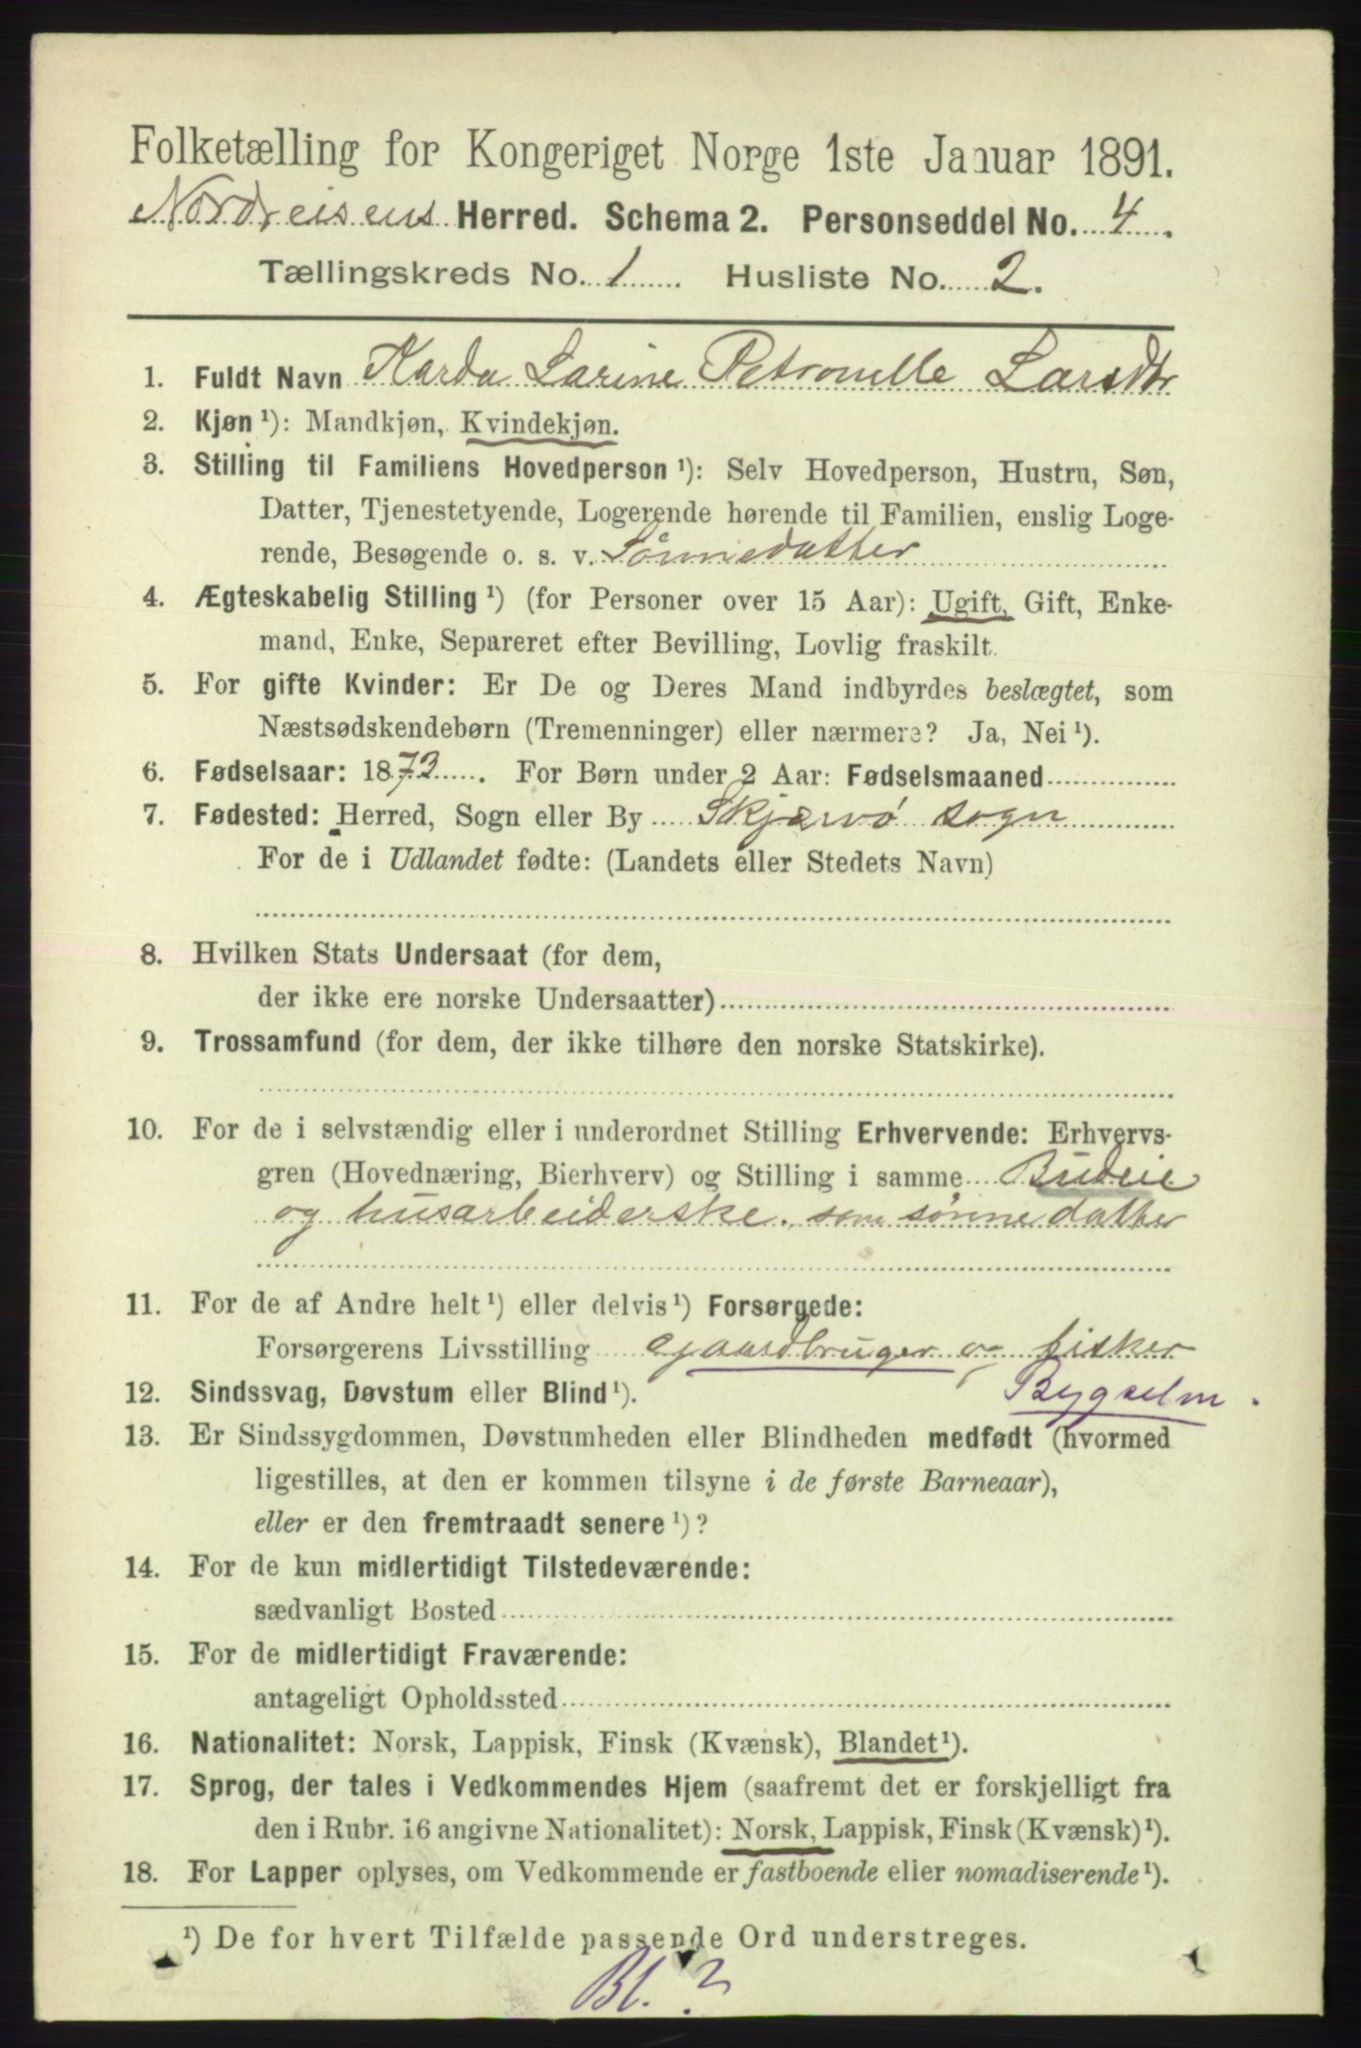 Folketælling for Kongeriget Norge 1ste Januar 1891.
Nordreisens Herred. Schema 2. Personseddel No. 4.
Tællingskreds No. 1 Husliste No. 2.
1. Fuldt Navn Karda Larine Petronelle Larsdtr
2. Kjøn ¹): Mandkjøn, Kvindekjøn.
3. Stilling til Familiens Hovedperson ¹): Selv Hovedperson, Hustru, Søn,
Datter, Tjenestetyende, Logerende hørende til Familien, enslig Loge-
rende, Besøgende o. s. v. Sønnedatter
4. Ægteskabelig Stilling ¹) (for Personer over 15 Aar): Ugift, Gift, Enke-
mand, Enke, Separeret efter Bevilling, Lovlig fraskilt.
5. For gifte Kvinder: Er De og Deres Mand indbyrdes beslægtet, som
Næstsødskendebørn (Tremenninger) eller nærmere? Ja, Nei ¹).
6. Fødselsaar: 1873. For Børn under 2 Aar: Fødselsmaaned
7. Fødested: Herred, Sogn eller By Skjærvø sogn
For de i Udlandet fødte: (Landets eller Stedets Navn)
8. Hvilken Stats Undersaat (for dem,
der ikke ere norske Undersaatter)
9. Trossamfund (for dem, der ikke tilhøre den norske Statskirke).
10. For de i selvstændig eller i underordnet Stilling Erhvervende: Erhvervs-
gren (Hovednæring, Bierhverv) og Stilling i samme Budeie
og husarbeiderske. som sønnedatter
11. For de af Andre helt ¹) eller delvis ¹) Forsørgede:
Forsørgerens Livsstilling gaardbruger og fisker
12. Sindssvag, Døvstum eller Blind ¹). Bygselm.
13. Er Sindssygdommen, Døvstumheden eller Blindheden medfødt (hvormed
ligestilles, at den er kommen tilsyne i de første Barneaar),
eller er den fremtraadt senere ¹)?
14. For de kun midlertidigt Tilstedeværende:
sædvanligt Bosted
15. For de midlertidigt Fraværende:
antageligt Opholdssted
16. Nationalitet: Norsk, Lappisk, Finsk (Kvænsk), Blandet ¹).
17. Sprog, der tales i Vedkommendes Hjem (saafremt det er forskjelligt fra
den i Rubr. 16 angivne Nationalitet): Norsk, Lappisk, Finsk (Kvænsk) ¹).
18. For Lapper oplyses, om Vedkommende er fastboende eller nomadiserende ¹).
¹) De for hvert Tilfælde passende Ord understreges.
Bl. ?